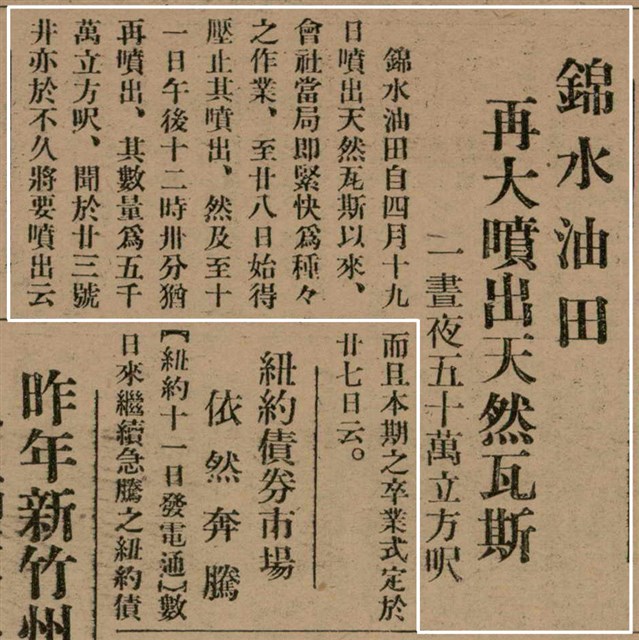 錦水油田
再大噴出天然瓦斯
一晝夜五十萬立方呎
錦水油田自四月十九
日噴出天然瓦斯以來、
會社當局即緊快爲種々
之作業、至廿八日始得
壓止其噴出、然及至十
一日午後十二時卅分猶
再噴出、其數量爲五千
萬立方呎、聞於廿三號
井亦於不久將要噴出云
而且本期之卒業式定於
廿七日云。
紐約債券市場
依然奔騰
【紐約十一日發電通】數
日來繼續急騰之紐約債
昨年新竹州